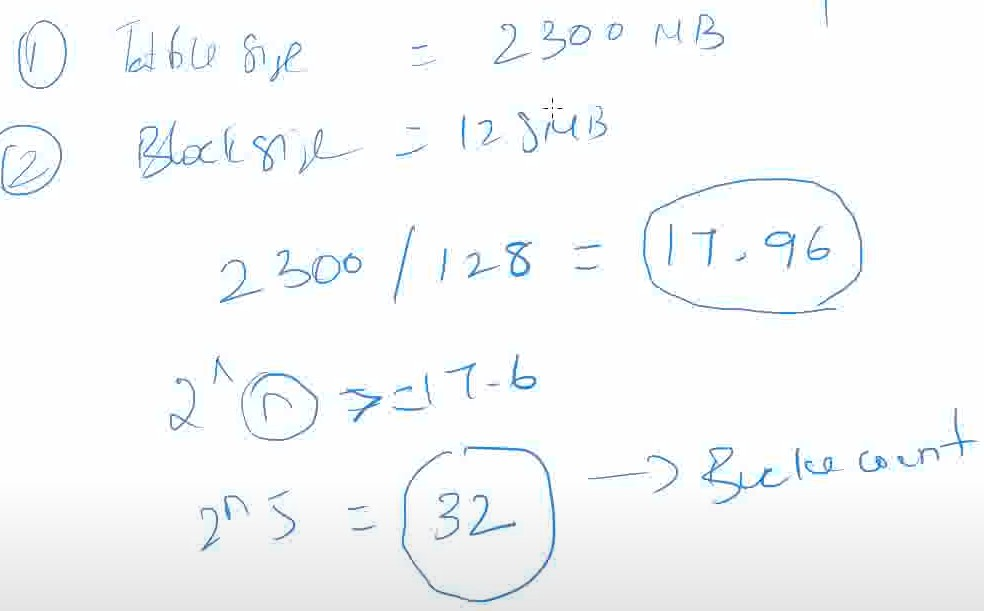 ① Table Size = 2300 MB
② Block size = 128MB
2300 / 128 = 17.96
2^n >= 17.6
2^5 = 32 → Bucke count